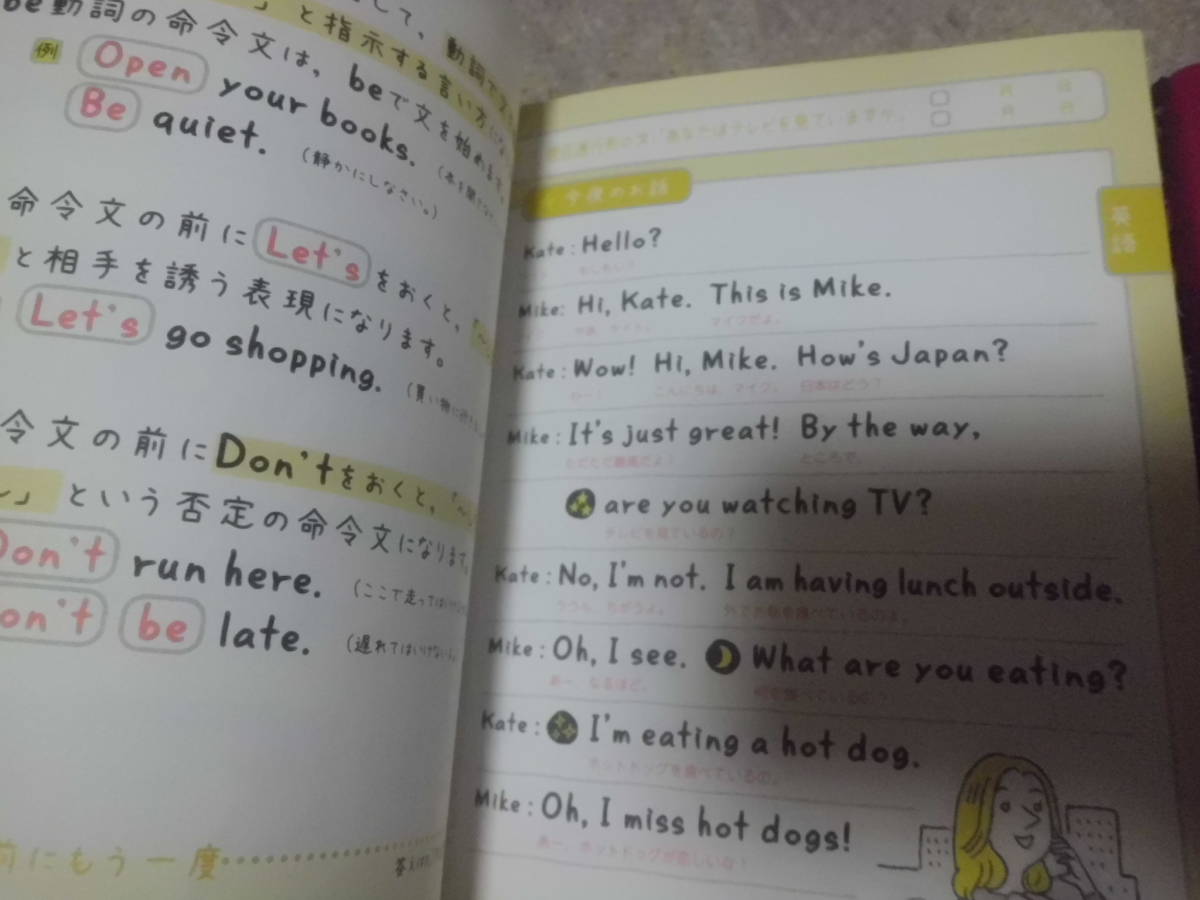 be動詞の命令文は，beで文を始めます。
」と指示する言い方にな
例 Open your books.
Be quiet. （静かにしなさい。）
命令文の前にLet'sをおくと，「〜
と相手を誘う表現になります。
Let's go shopping.
令文の前にDon'tをおくと，「〜
」という否定の命令文になります。
Don't run here. （ここで走ってはいけない
Don't be late. （遅れてはいけない
前にもう一度
今夜のお話
英語
Kate : Hello?
もしもし？
Mike: Hi, Kate. This is Mike.
やあ，ケイト。 マイクだよ。
Kate : Wow! Hi, Mike. How's Japan?
わー！ こんにちは，マイク。 日本はどう？
Mike : It's just great! By the way,
ただただ最高だよ！ ところで，
are you watching TV?
テレビを見ているの？
Kate : No, I'm not. I am having lunch outside.
ううん，ちがうよ。 外でお昼を食べているのよ。
Mike : Oh, I see. What are you eating?
あー，なるほど。 何を食べているの？
Kate : I'm eating a hot dog.
ホットドッグを食べているの。
Mike : Oh, I miss hot dogs!
あー，ホットドッグが恋しいな！